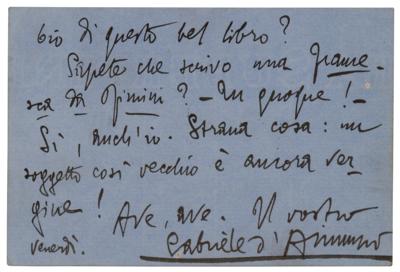 bio di questo bel libro?
Sapete che scrivo una France-
sca da Rimini? – Tu quoque! –
Sì, anch'io. Strana cosa: un
soggetto così vecchio è ancora ver-
gine! Ave, ave. Il vostro
venerdì. Gabriele d'Annunzio